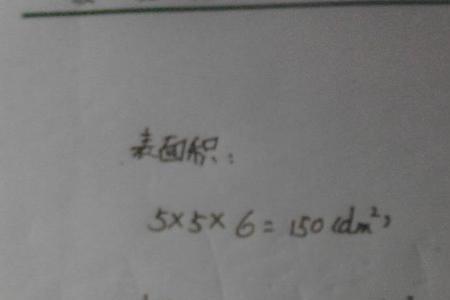 表面积:
5×5×6=150(dm²)